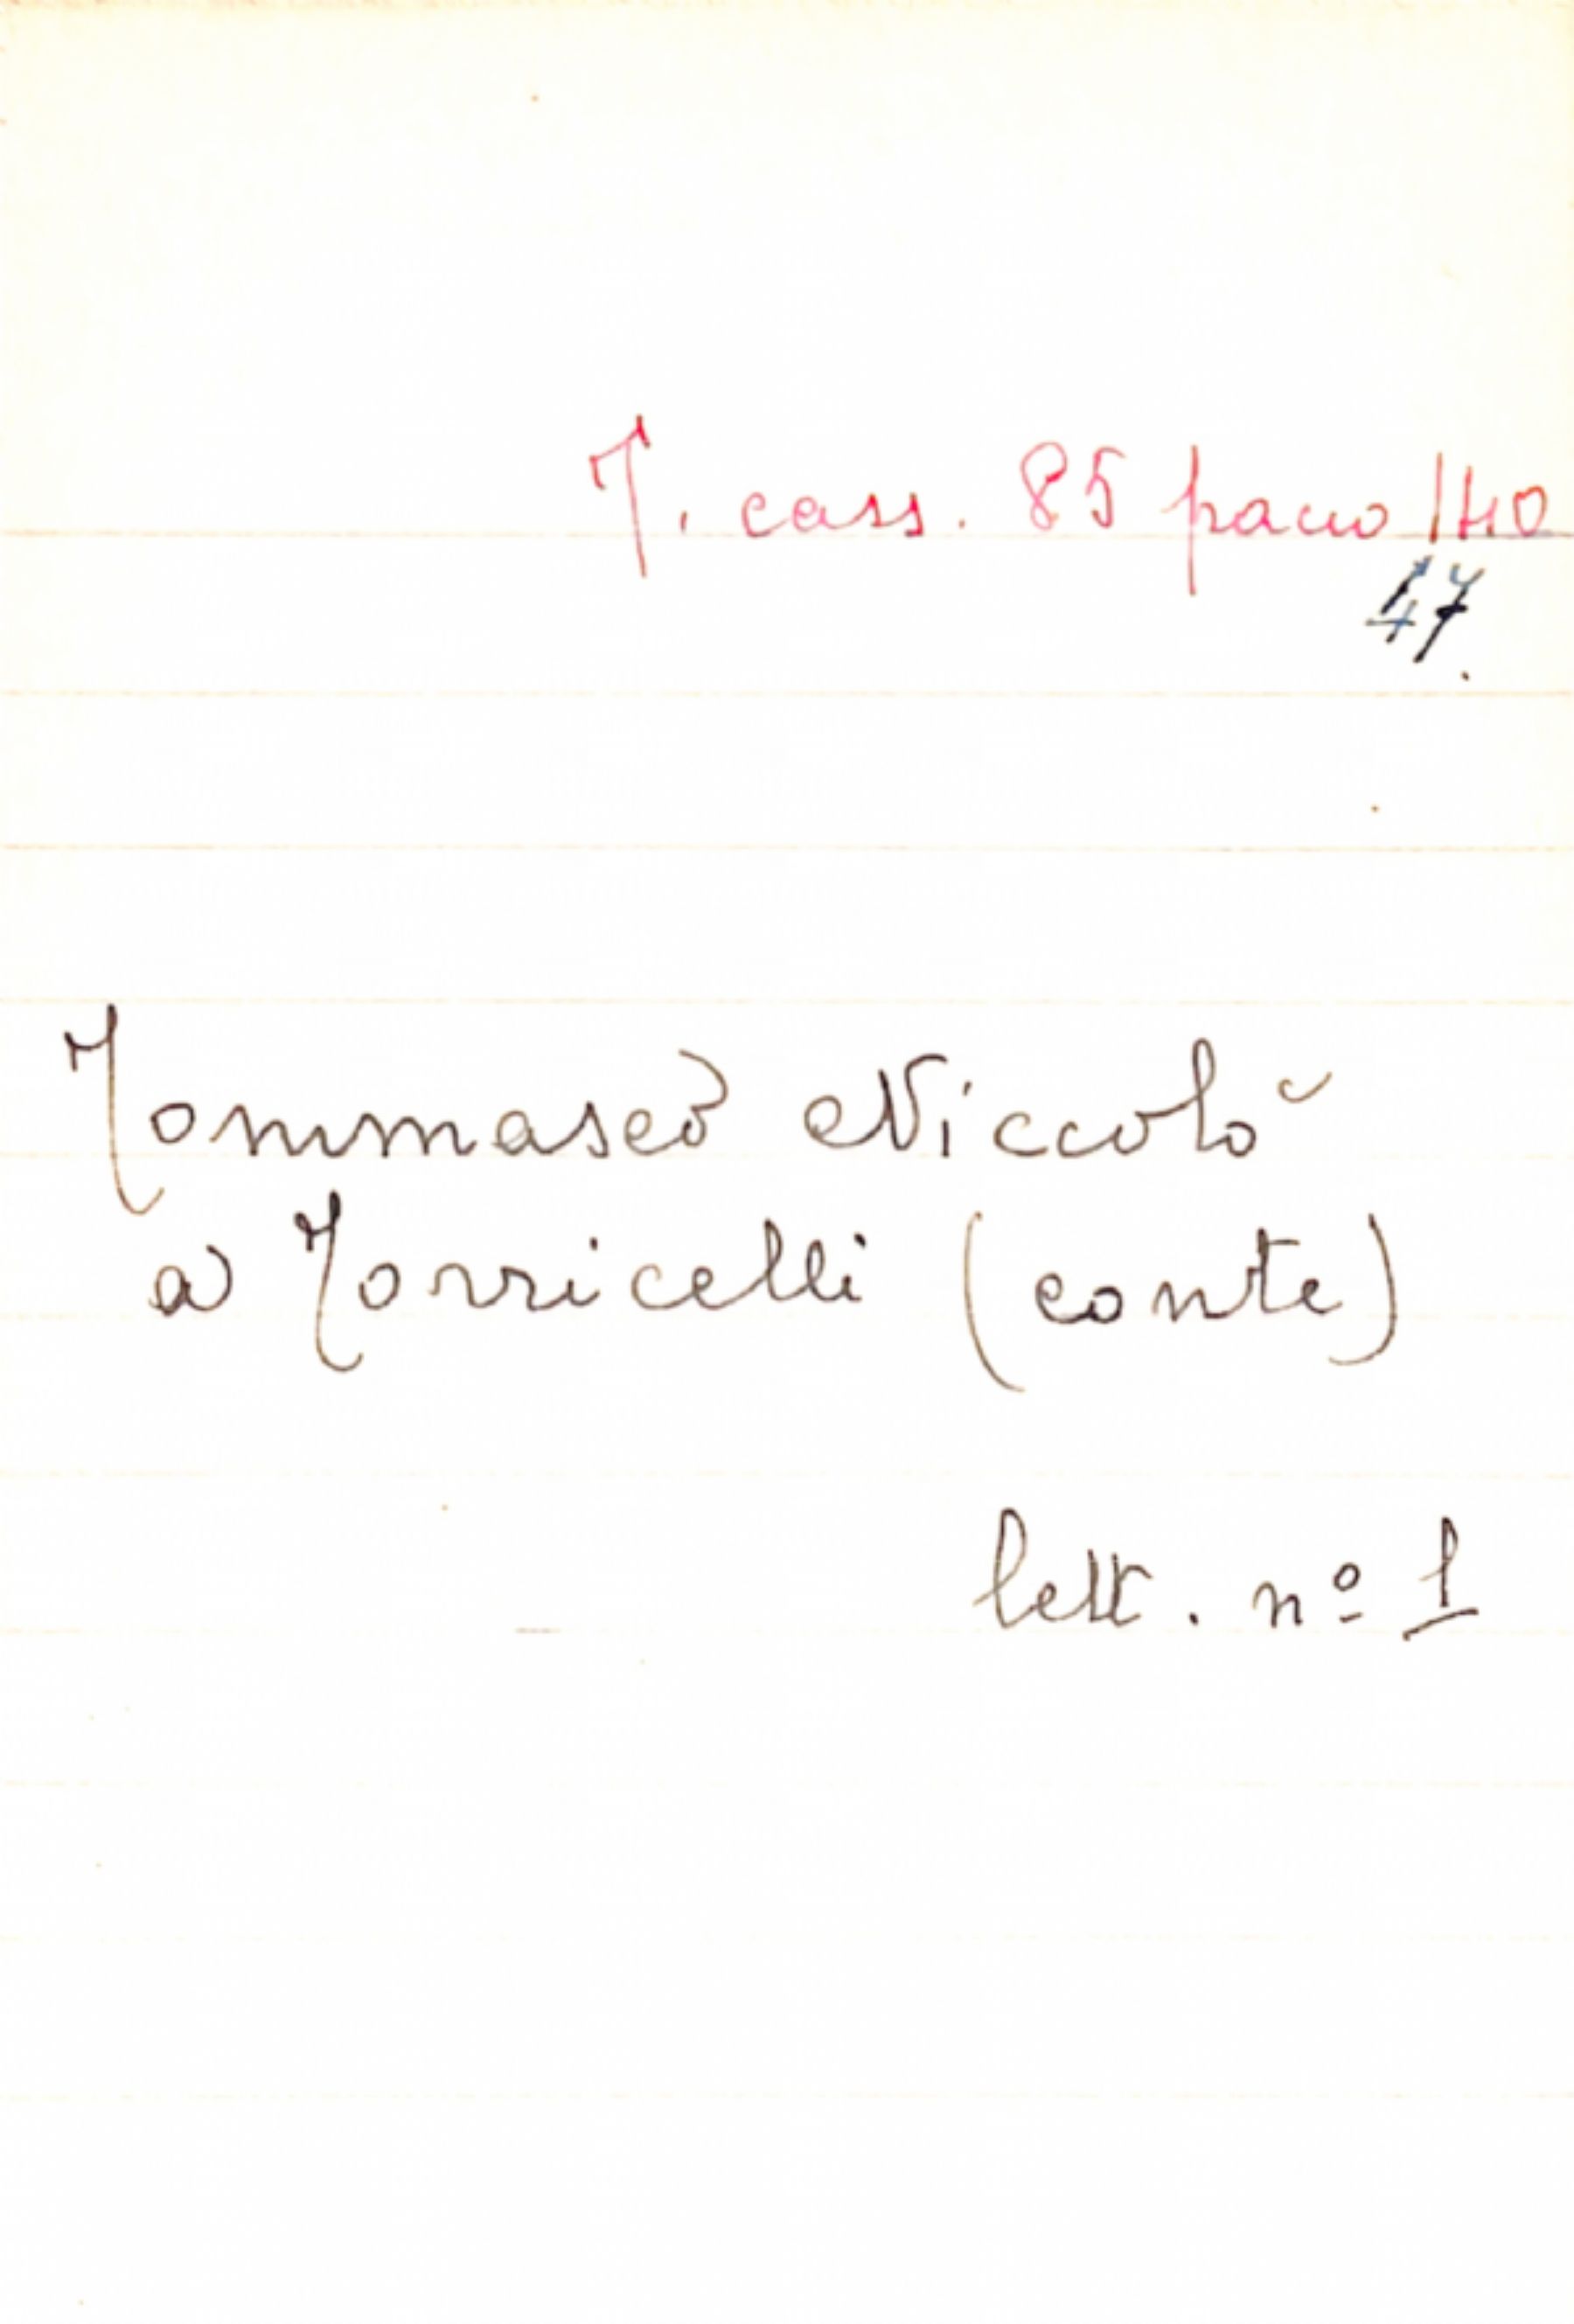 T. cass. 85 pacco 140
47.
Tommaseo Niccolò
a Torricelli (conte)
lett. nº 1